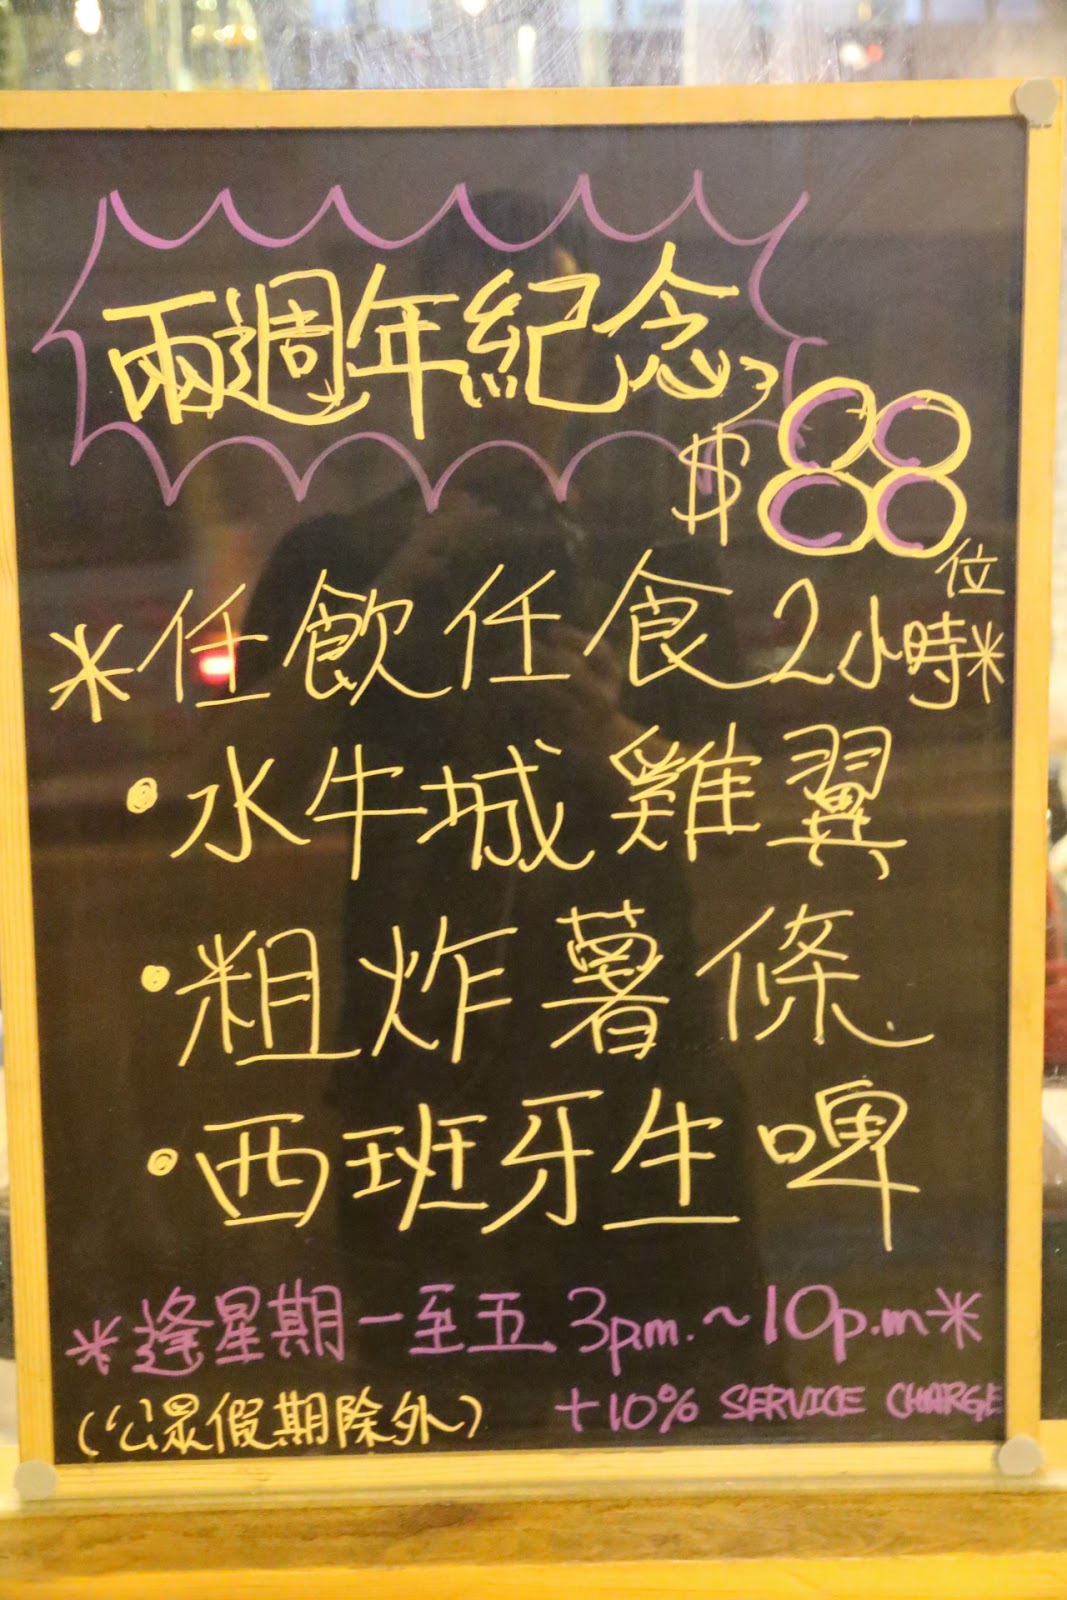 兩週年紀念
$88
位
*任飲任食2小時*
•水牛城雞翼
•粗炸薯條
•西班牙生啤
*逢星期一至五 3p.m.~10p.m*
(公眾假期除外) +10% SERVICE CHARGE